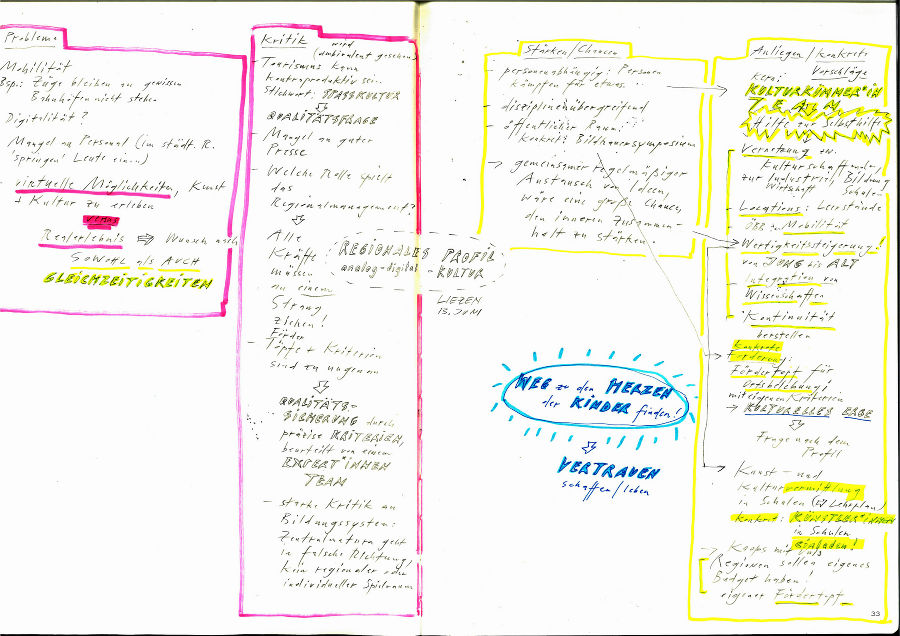 Probleme
Mobilität
Bsp.: Züge bleiben an gewissen
Bahnhöfen nicht stehen
Digitalität?
Mangel an Personal (im städt. R.
"springen" Leute ein...)
- virtuelle Möglichkeiten, Kunst
+ Kultur zu erleben
versus
Realerlebnis ⇨ Wunsch nach
SOWOHL als AUCH
GLEICHZEITIGKEITEN
Kritik
wird
(ambivalent gesehen)
- Tourismus kann
kontraproduktiv sei..
Stichwort: SPASSKULTUR
QUALITÄTSFRAGE
- Mangel an guter
Presse
- Welche Rolle spielt
das
Regionalmanagement?
Alle
Kräfte
müssen
an einem
Strang
ziehen!
Förder
- Töpfe + Kriterien
sind zu ungenau
QUALITÄTS-
SICHERUNG durch
präzise KRITERIEN,
beurteilt von einem
EXPERT*INNEN
TEAM
- starke Kritik an
Bildungssystem:
Zentralmatura geht
in falsche Richtung,
kein regionaler oder
individueller Spielraum
REGIONALES PROFIL
analog-digital - KULTUR
LIEZEN
13. JUNI
Stärken/Chancen
- personenabhängig: Personen
kämpfen für etwas...
- disziplinenübergreifend
- öffentlicher Raum!
konkret: Bildhauersymposium
→ gemeinsamer regelmäßiger
Austausch von Ideen,
wäre eine große Chance,
den inneren Zusammen-
halt zu stärken.
WEG zu den HERZEN
der KINDER finden!
VERTRAUEN
schaffen/leben
Anliegen/konkrete
Vorschläge
KULTURKÜMMER*IN
TEAM
Hilfe zur Selbsthilfe
- Vernetzung zw.
Kulturschaffenden
zur Industrie, Bildung
Wirtschaft Schulen
- Locations: Leerstände
- ÖBB Mobilität
- Wertigkeitssteigerung!
von JUNG bis ALT
- Integration von
Wissenschaften
- Kontinuität
herstellen
konkrete
→ Förderung:
Fördertopf für
Ortsbelebung!
mit eigenen Kriterien
→ KULTURELLES ERBE
Frage nach dem
Profil
Kunst- und
Kulturvermittlung
in Schulen (Lehrplan)
konkret: KÜNSTLER*INNEN
in Schulen
einladen!
→ Koops mit
Regionen sollen eigenes
Budget haben!
eigener Fördertopf
33